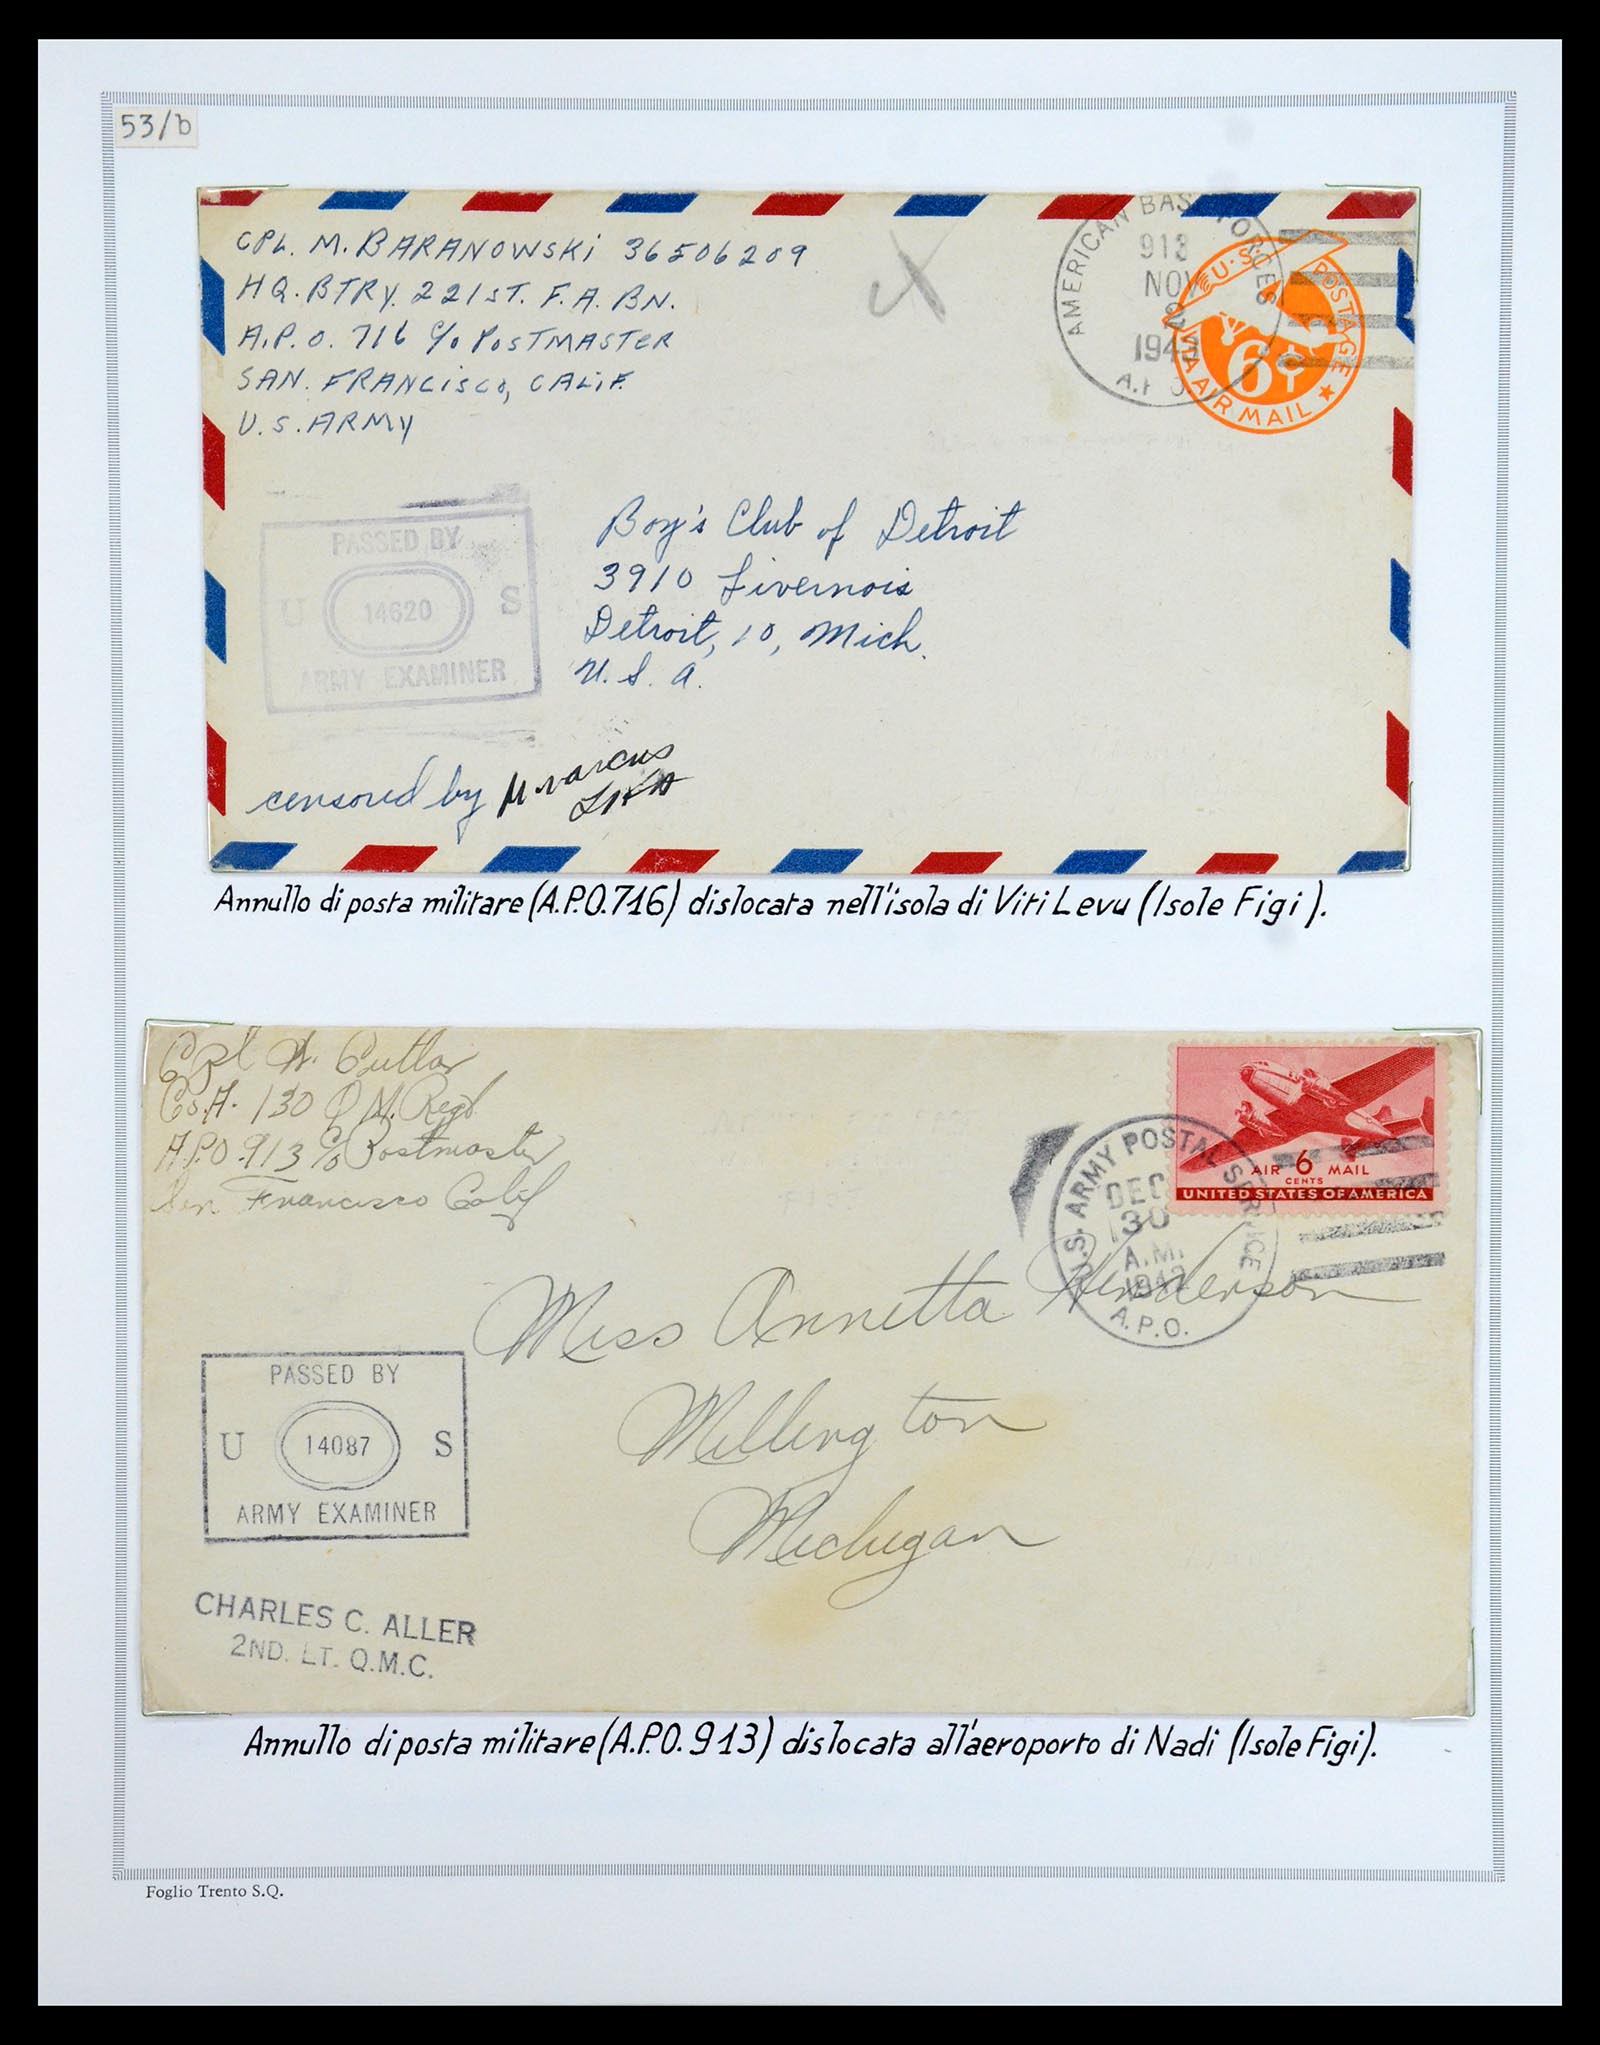 53/b
CPL. M. BARANOWSKI 36506209
HQ. BTRY. 221ST. F.A. BN.
A.P.O. 716 c/o POSTMASTER
SAN. FRANCISCO, CALIF.
U.S. ARMY
AMERICAN BASE FORCES
913
NOV
A.P.O.
U.S. POSTAGE
6¢
VIA AIR MAIL
PASSED BY
U 14620 S
ARMY EXAMINER
Boy's Club of Detroit
3910 Livernois
Detroit, 10, Mich.
U. S. A.
censored by
Annullo di posta militare (A.P.O. 716) dislocata nell'isola di Viti Levu (Isole Figi).
Cpl W. Cutlar
Co. A. 130 Q M. Regt
A.P.O. 913 c/o Postmaster
San Francisco Calif
AIR 6 MAIL
CENTS
UNITED STATES OF AMERICA
U.S. ARMY POSTAL SERVICE
DEC
30
A.M.
1942
A.P.O.
Miss Annetta Henderson
Millington
Michigan
PASSED BY
U 14087 S
ARMY EXAMINER
CHARLES C. ALLER
2ND. LT. Q.M.C.
Annullo di posta militare (A.P.O. 913) dislocata all'aeroporto di Nadi (Isole Figi).
Foglio Trento S.Q.